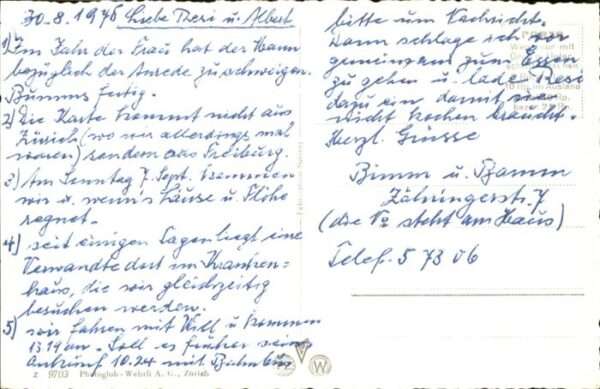 30.8.1976 Liebe Theri u. Albert
1) Im Jahr der Frau hat der Mann
bezüglich der Anrede zu schweigen.
Bumms fertig.
2) Die Karte kommt nicht aus
Zürich (wo wir allerdings mal
waren) sondern aus Freiburg.
3) Am Sonntag 7. Sept. kommen
wir u. wenn's Läuse u. Flöhe
regnet.
4) seit einigen Tagen liegt eine
Verwandte dort im Kranken=
haus, die wir gleichzeitig
besuchen werden.
5) wir fahren mit Will u. kommen
1319 an. Soll es früher
Ankunft 10.24 mit Bahn
z 9703 Photoglob-Wehrli A. G., Zürich
bitte um Nachricht.
Dann schlage ich vor
gemeinsam zum Essen
zu gehen u. lade Resi
dazu ein damit sie
nicht kochen braucht.
Herzl. Grüsse
Bimm u. Bamm
Zähringerstr. 7
(die 7a steht am Haus)
Telef. 5 73 06
W